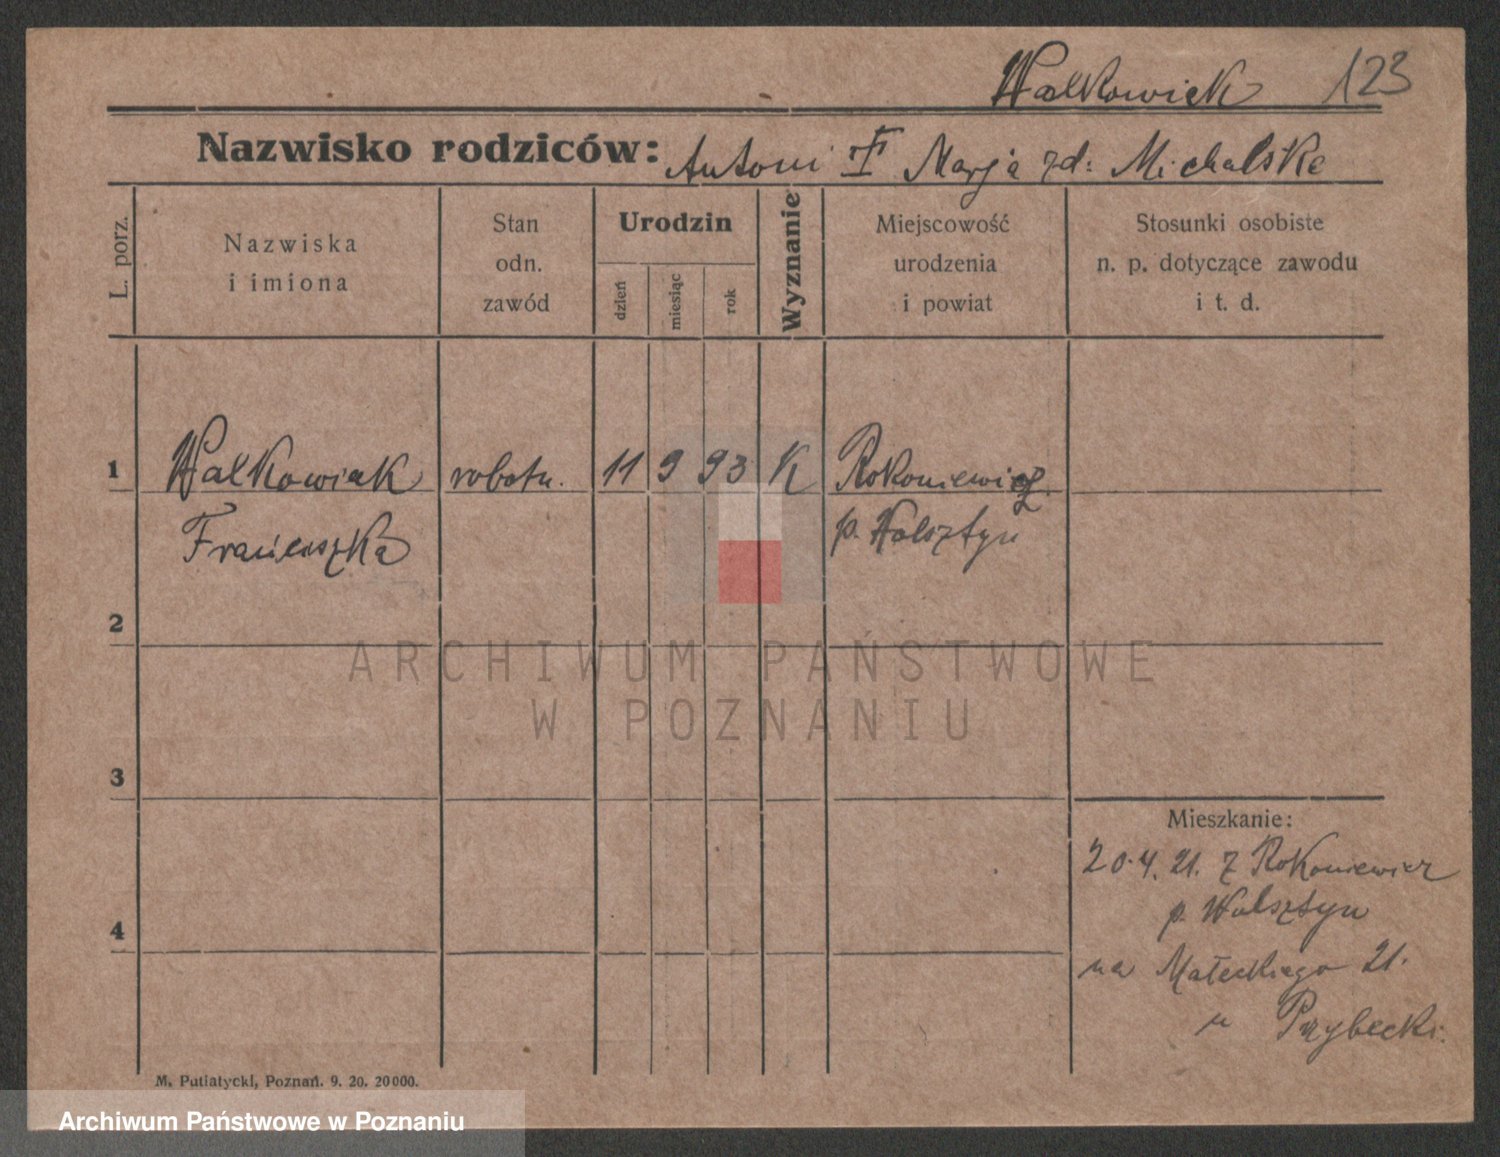 Walkowiak 123
Nazwisko rodziców: Antoni Marja zd: Michalska
L. porz.
Nazwiska
i imiona
Stan
odn.
zawód
Urodzin
dzień
miesiąc
rok
Wyznanie
Miejscowość
urodzenia
i powiat
Stosunki osobiste
n. p. dotyczące zawodu
i t. d.
1 Walkowiak robotn. 11 9 93 K Rokoniewice
Franciszka p. Wolsztyn
2
3
Mieszkanie:
20.4.21. z Rokoniewice
p. Wolsztyn
4
na Małeckiego 21.
u Przybecki.
M. Putiatycki, Poznań. 9. 20. 20000.
ARCHIWUM PAŃSTWOWE
W POZNANIU
Archiwum Państwowe w Poznaniu